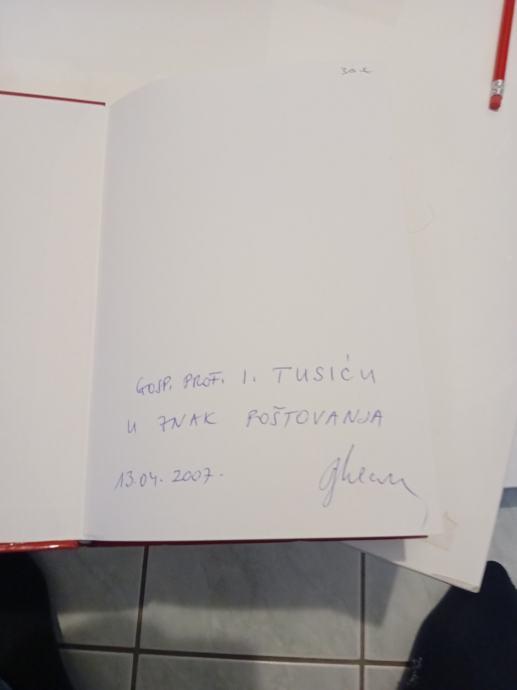 30 €
GOSP. PROF. I. TUSIĆU
U ZNAK POŠTOVANJA
13.04.2007.